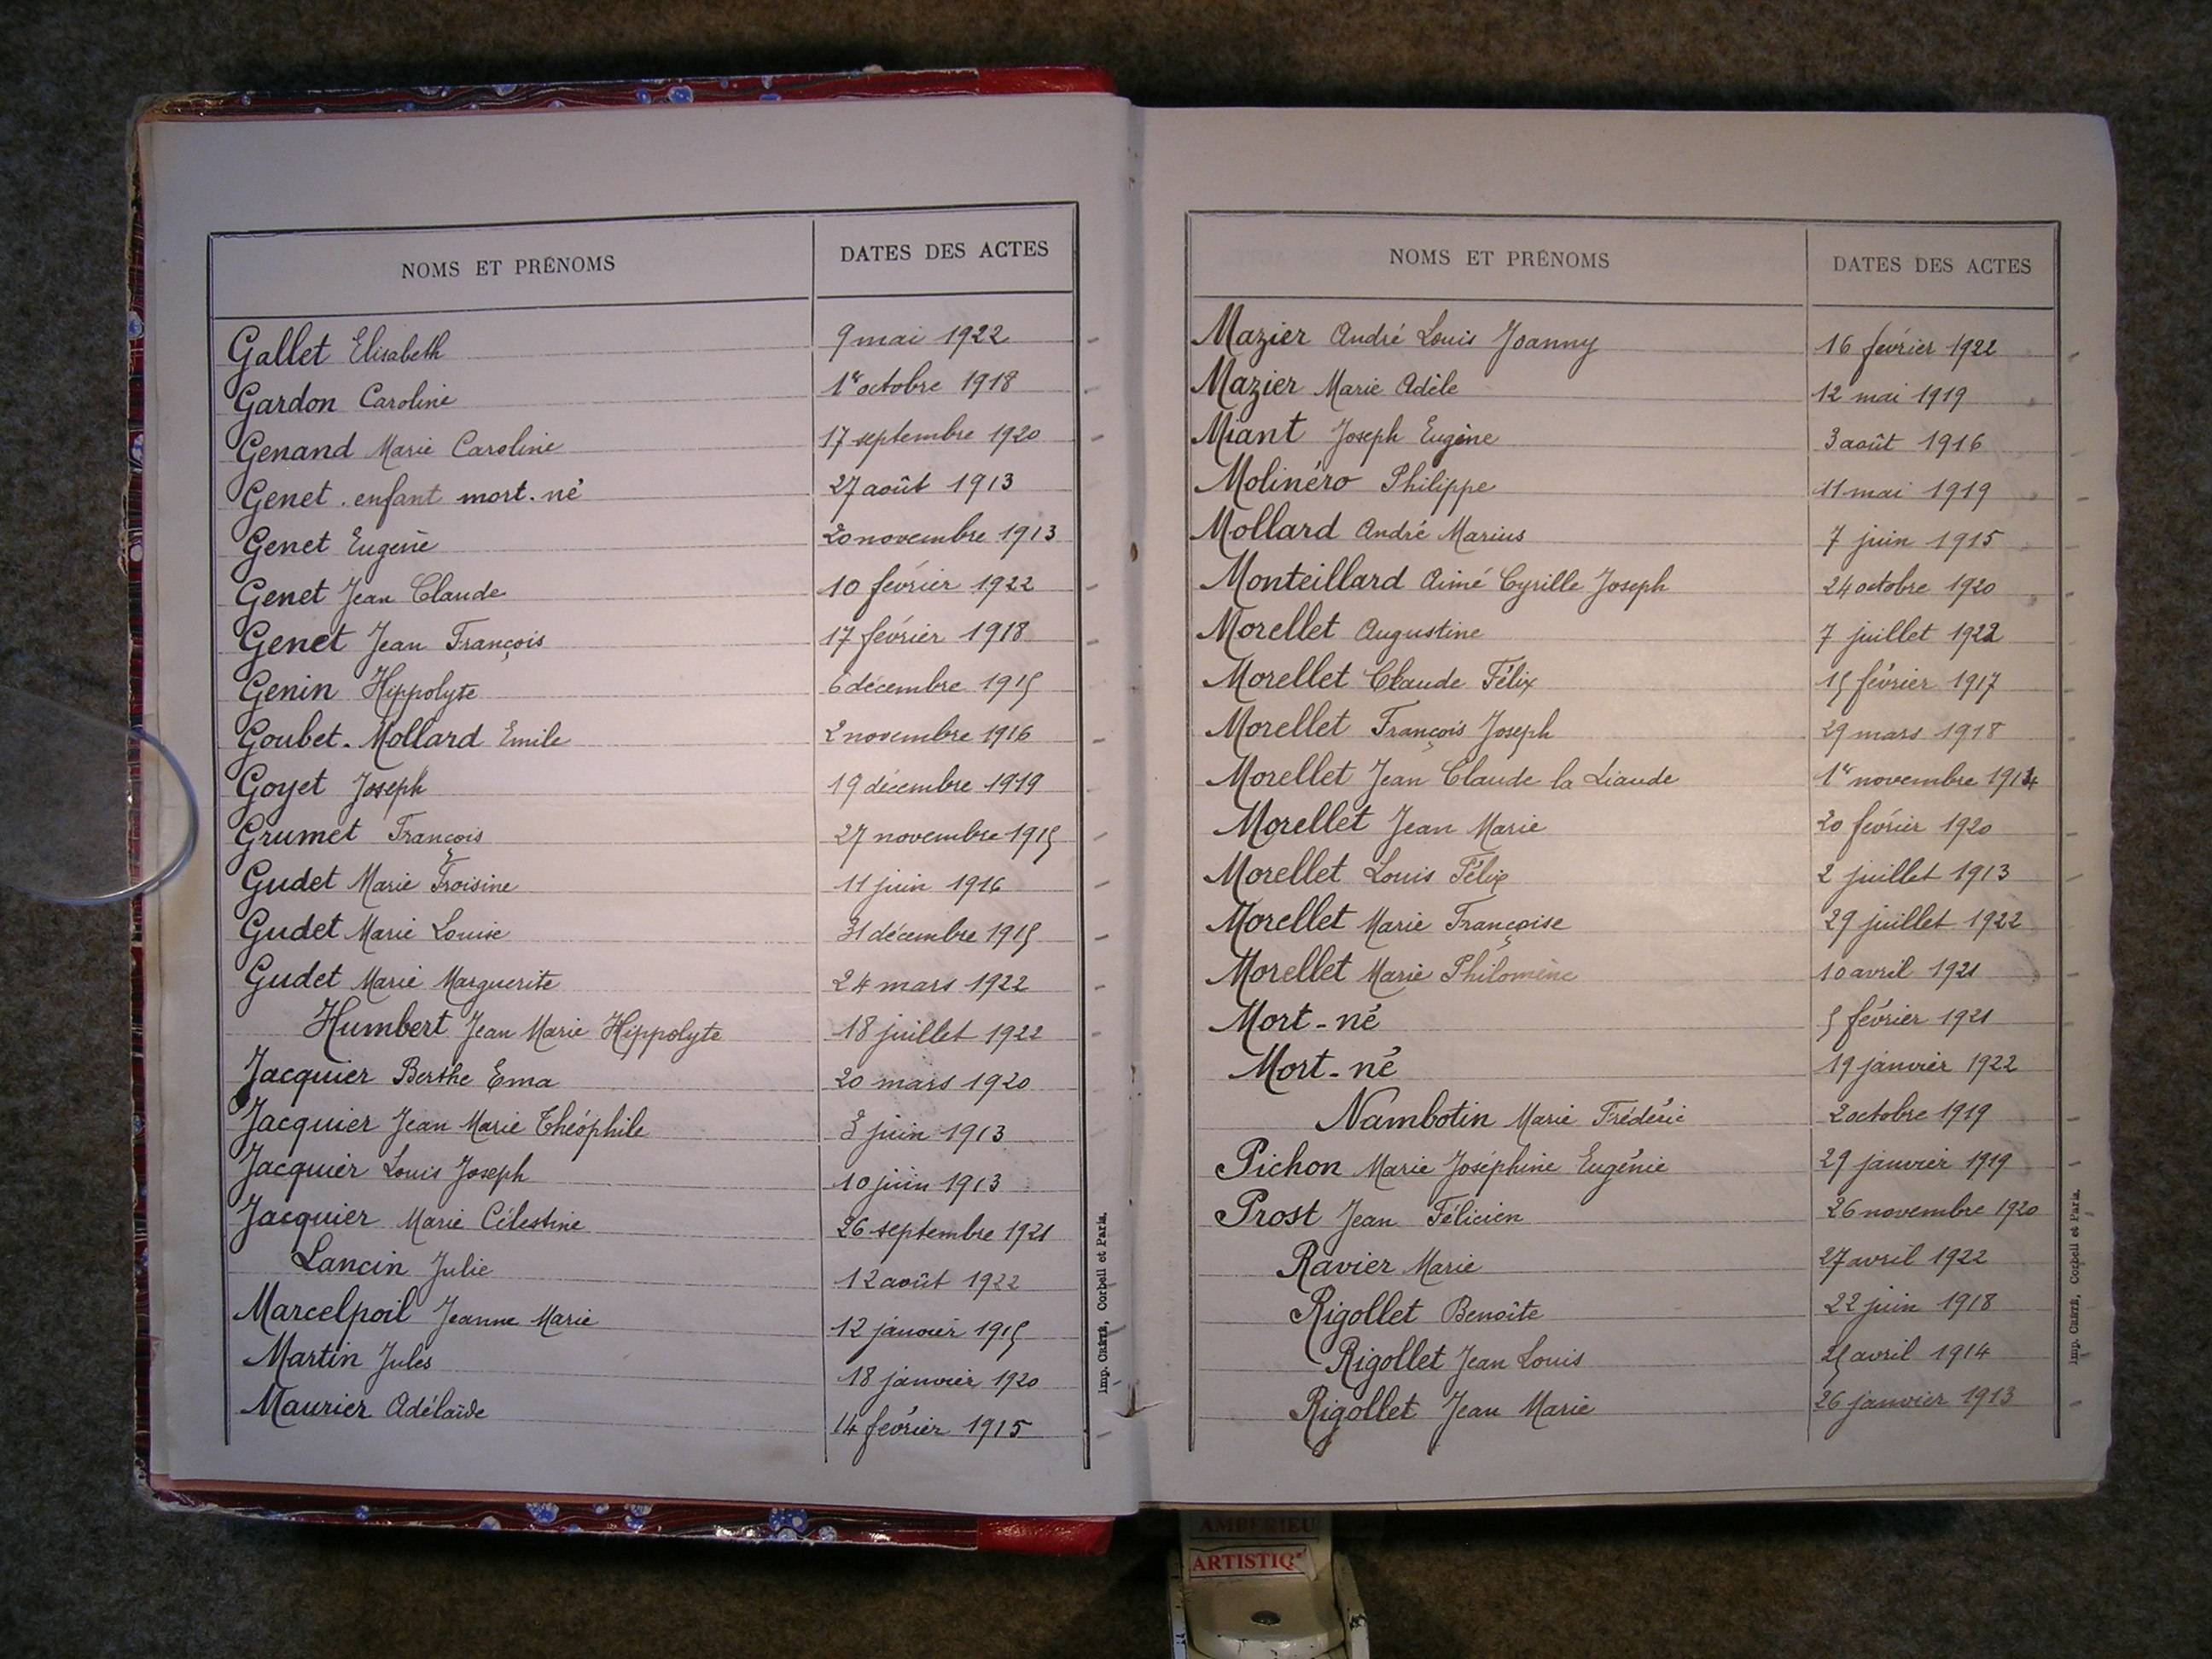 NOMS ET PRÉNOMS DATES DES ACTES
Gallet Elisabeth 9 mai 1922
Gardon Caroline 1er octobre 1918
Genand Marie Caroline 17 septembre 1920
Genet. enfant mort-né 27 août 1913
Genet Eugène 20 novembre 1913
Genet Jean Claude 10 février 1922
Genet Jean François 17 février 1918
Genin Hippolyte 6 décembre 1915
Goubet-Mollard Emile 2 novembre 1916
Goyet Joseph 19 décembre 1919
Grumet François 27 novembre 1915
Gudet Marie Froisine 11 juin 1916
Gudet Marie Louise 31 décembre 1915
Gudet Marie Marguerite 24 mars 1922
Humbert Jean Marie Hippolyte 18 juillet 1922
Jacquier Berthe Ema 20 mars 1920
Jacquier Jean Marie Théophile juin 1913
Jacquier Louis Joseph 10 juin 1913
Jacquier Marie Célestine 26 septembre 1921
Lancin Julie 12 août 1922
Marcelpoil Jeanne Marie 12 janvier 1915
Martin Jules 18 janvier 1920
Maurier Adélaïde 14 février 1915
Imp. CRÉTÉ, Corbeil et Paris.
NOMS ET PRÉNOMS DATES DES ACTES
Mazier André Louis Joanny 16 février 1922
Mazier Marie Adèle 12 mai 1919
Miant Joseph Eugène 3 août 1916
Molinéro Philippe 11 mai 1919
Mollard André Marius 7 juin 1915
Monteillard Aimé Cyrille Joseph 24 octobre 1920
Morellet Augustine 7 juillet 1922
Morellet Claude Félix 15 février 1917
Morellet François Joseph 29 mars 1918
Morellet Jean Claude la Liaude 1er novembre 1914
Morellet Jean Marie 20 février 1920
Morellet Louis Félix 2 juillet 1913
Morellet Marie Françoise 29 juillet 1922
Morellet Marie Philomène 10 avril 1921
Mort-né 5 février 1921
Mort-né 19 janvier 1922
Nambotin Marie Frédéric 2 octobre 1919
Pichon Marie Joséphine Eugénie 29 janvier 1919
Prost Jean Félicien 26 novembre 1920
Ravier Marie 27 avril 1922
Rigollet Benoîte 22 juin 1918
Rigollet Jean Louis avril 1914
Rigollet Jean Marie 26 janvier 1913
Imp. CRÉTÉ, Corbeil et Paris.
AMBERIEU
ARTISTIQ'